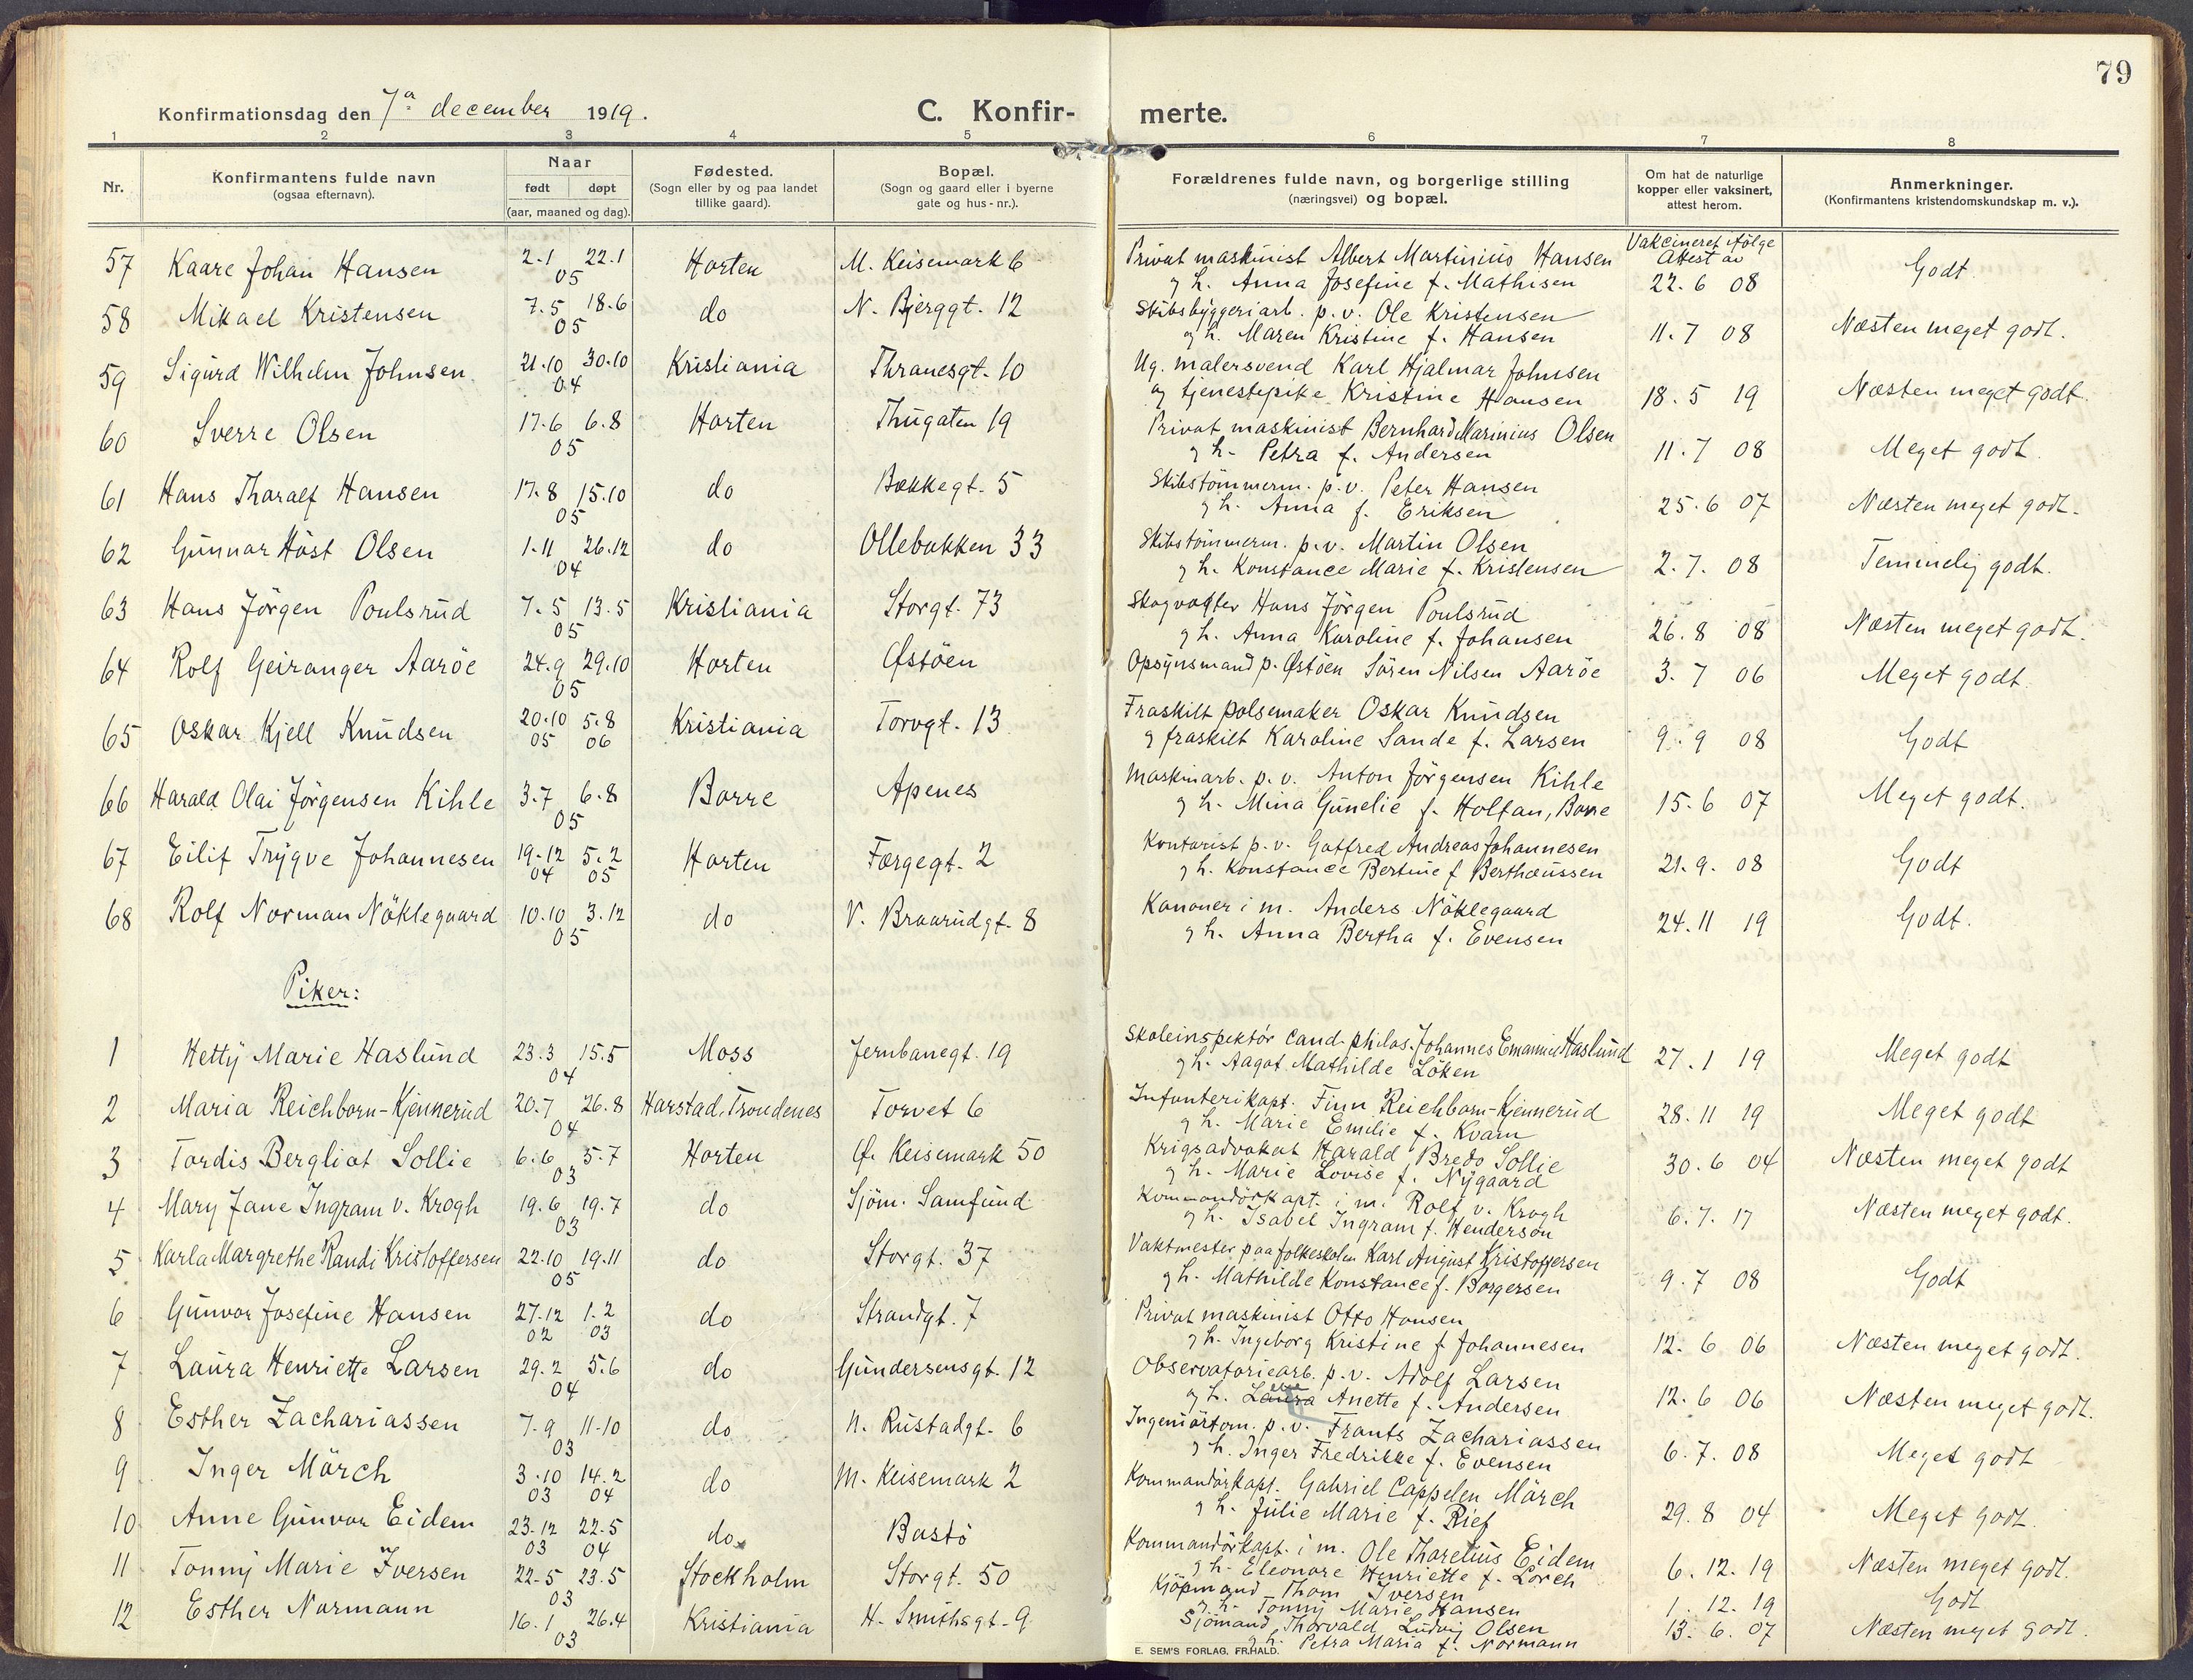 79
Konfirmationsdag den 7de december 1919.
C. Konfir- merte.
1 2 3 4 5 6 7 8
Nr.
Konfirmantens fulde navn
(ogsaa efternavn).
Naar
født døpt
(aar, maaned og dag).
Fødested.
(Sogn eller by og paa landet
tillike gaard).
Bopæl.
(Sogn og gaard eller i byerne
gate og hus-nr.).
Forældrenes fulde navn, og borgerlige stilling
(næringsvei) og bopæl.
Om hat de naturlige
kopper eller vaksinert,
attest herom.
Anmerkninger.
(Konfirmantens kristendomskundskap m. v.).
Vakcineret ifölge
Attest av
57 Kaare Johan Hansen 2.1 22.1 05 Horten M. Keisemark 6 Privat maskinist Albert Martinius Hansen
g h. Anna Josefine f. Mathisen 22.6 08 Godt
58 Mikael Kristensen 7.5 18.6 05 do N. Bjerggt. 12 Skibsbyggeriarb. p.v. Ole Kristensen
og h. Maren Kristine f. Hansen 11.7 08 Næsten meget godt.
59 Sigurd Wilhelm Johnsen 21.10 30.10 04 Kristiania Thranesgt. 10 Ug. malersvend Karl Hjalmar Johnsen
og tjenestepike Kristine Hansen 18.5 19 Næsten meget godt.
60 Sverre Olsen 17.6 6.8 05 Horten Thugaten 19 Privat maskinist Bernhard Marinius Olsen
g h. Petra f. Andersen 11.7 08 Meget godt.
61 Hans Tharalf Hansen 17.8 15.10 05 do Bækkegt. 5 Skibstömmerm. p.v. Peter Hansen
g h. Anna f. Eriksen 25.6 07 Næsten meget godt.
62 Gunnar Höst Olsen 1.11 26.12 04 do Ollebakken 33 Skibstömmerm. p.v. Martin Olsen
g h. Konstance Marie f. Kristensen 2.7. 08 Temmelig godt.
63 Hans Jörgen Poulsrud 7.5 13.5 05 Kristiania Storgt. 73 Skogvogter Hans Jörgen Poulsrud
g h. Anna Karoline f. Johansen 26.8 08 Næsten meget godt.
64 Rolf Geiranger Aaröe 24.9 29.10 05 Horten Østöen Opsynsmand p. Østöen Sören Nilsen Aaröe 3.7 06 Meget godt
65 Oskar Kjell Knudsen 20.10 05 5.8 06 Kristiania Torvgt. 13 Fraskilt pølsemaker Oskar Knudsen
g fraskilt Karoline Sande f. Larsen 9.9 08 Godt
66 Harald Olai Jörgensen Kihle 3.7 6.8 05 Borre Apenes Maskinarb. p.v. Anton Jörgensen Kihle
g h. Mina Gunelie f. Holtan, Borre 15.6 07 Meget godt.
67 Eilif Trygve Johannesen 19.12 04 5.2 05 Horten Færgegt. 2 Kontorist p.v. Gotfred Andreas Johannesen
g h. Konstance Bertine f. Berthæussen 21.9. 08 Godt
68 Rolf Norman Nöklegaard 10.10 3.12 05 do V. Braarudgt. 8 Kanoner i m. Anders Nöklegaard
g h. Anna Bertha f. Evensen 24.11 19 Godt.
Piker:
1 Hetty Marie Haslund 23.3 15.5 04 Moss Jernbanegt. 19 Skoleinspektör cand. philos. Johannes Emanuel Haslund
g h. Aagot Mathilde Löken 27.1 19 Meget godt
2 Maria Reichborn-Kjennerud 20.7 26.8 04 Harstad, Trondenes Torvet 6 Infanterikapt. Finn Reichborn-Kjennerud
g h. Marie Emelie f. Kvam 28.11 19 Meget godt
3 Tordis Bergliot Sollie 6.6 5.7 03 Horten Ø. Keisemark 50 Krigsadvokat Harald Bredo Sollie
g h. Marie Lovise f. Nygaard 30.6 04 Næsten meget godt
4 Mary Jane Ingram v. Krogh 19.6 19.7 03 do Sjöm. Samfund Kommandörkapt. i m. Rolf v. Krogh
g h. Isabel Ingram f. Henderson 6.7. 17 Næsten meget godt.
5 Karla Margrethe Randi Kristoffersen 22.10 19.11 05 do Storgt. 37 Vaktmester paa folkeskolen Karl August Kristoffersen
g h. Mathilde Konstance f. Borgersen 9.7 08 Godt
6 Gunvor Josefine Hansen 27.12 02 1.2 03 do Strandgt. 7 Privat maskinist Otto Hansen
g h. Ingeborg Kristine f. Johannesen 12.6 06 Næsten meget godt.
7 Laura Henriette Larsen 29.2 5.6 04 do Gundersensgt. 12 Observatoriearb. p.v. Adolf Larsen
g h. Laura Anette f. Andersen 12.6 06 Næsten meget godt.
8 Esther Zachariassen 7.9 11.10 03 do N. Rustadgt. 6 Ingeniörtom. p.v. Frants Zachariassen
g h. Inger Fredrikke f. Evensen 6.7. 08 Meget godt
9 Inger Mörch 3.10 03 14.2 04 do M. Keisemark 2 Kommandörkapt. Gabriel Cappelen Mörch
g h. Julie Marie f. Rief 29.8 04 Meget godt.
10 Anne Gunvor Eidem 23.12 03 22.5 04 do. Bastö Kommandörkapt. i m. Ole Tharelius Eidem
g h. Eleonore Henriette f. Lorch 6.12.19 Næsten meget godt.
11 Tonny Marie Iversen 22.5 23.5 03 Stockholm Storgt. 50 Kjöpmand Thom Iversen
g h. Tonny Marie Hansen 1.12.19 Godt
12 Esther Normann 16.1 26.4 03 Kristiania H. Smithsgt. 9 Sjömand Thorvald Ludvig Olsen
g h. Petra Maria f. Normann 13.6.07 Næsten meget godt.
E. SEM'S FORLAG, FR.HALD.